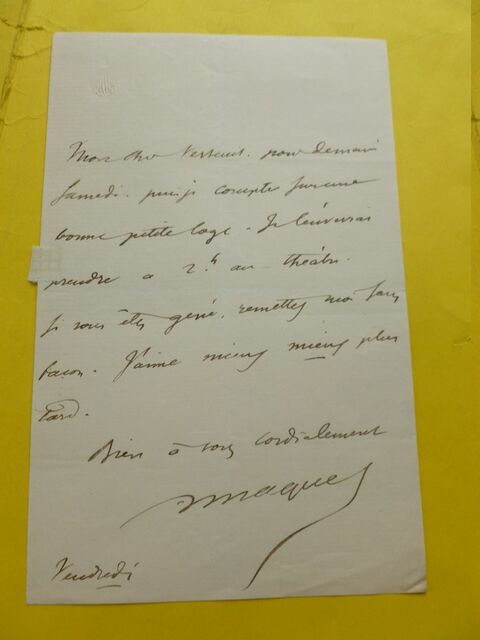 Mon cher Verteuil. pour demain
Samedi. puis-je compter sur une
bonne petite loge. Je l'enverrai
prendre a 2h au théâtre.
Si vous êtes gêné, remettez moi sans
façon. J'aime mieux mieux plus
tard.
Bien à vous cordialement
Maquet
Vendredi